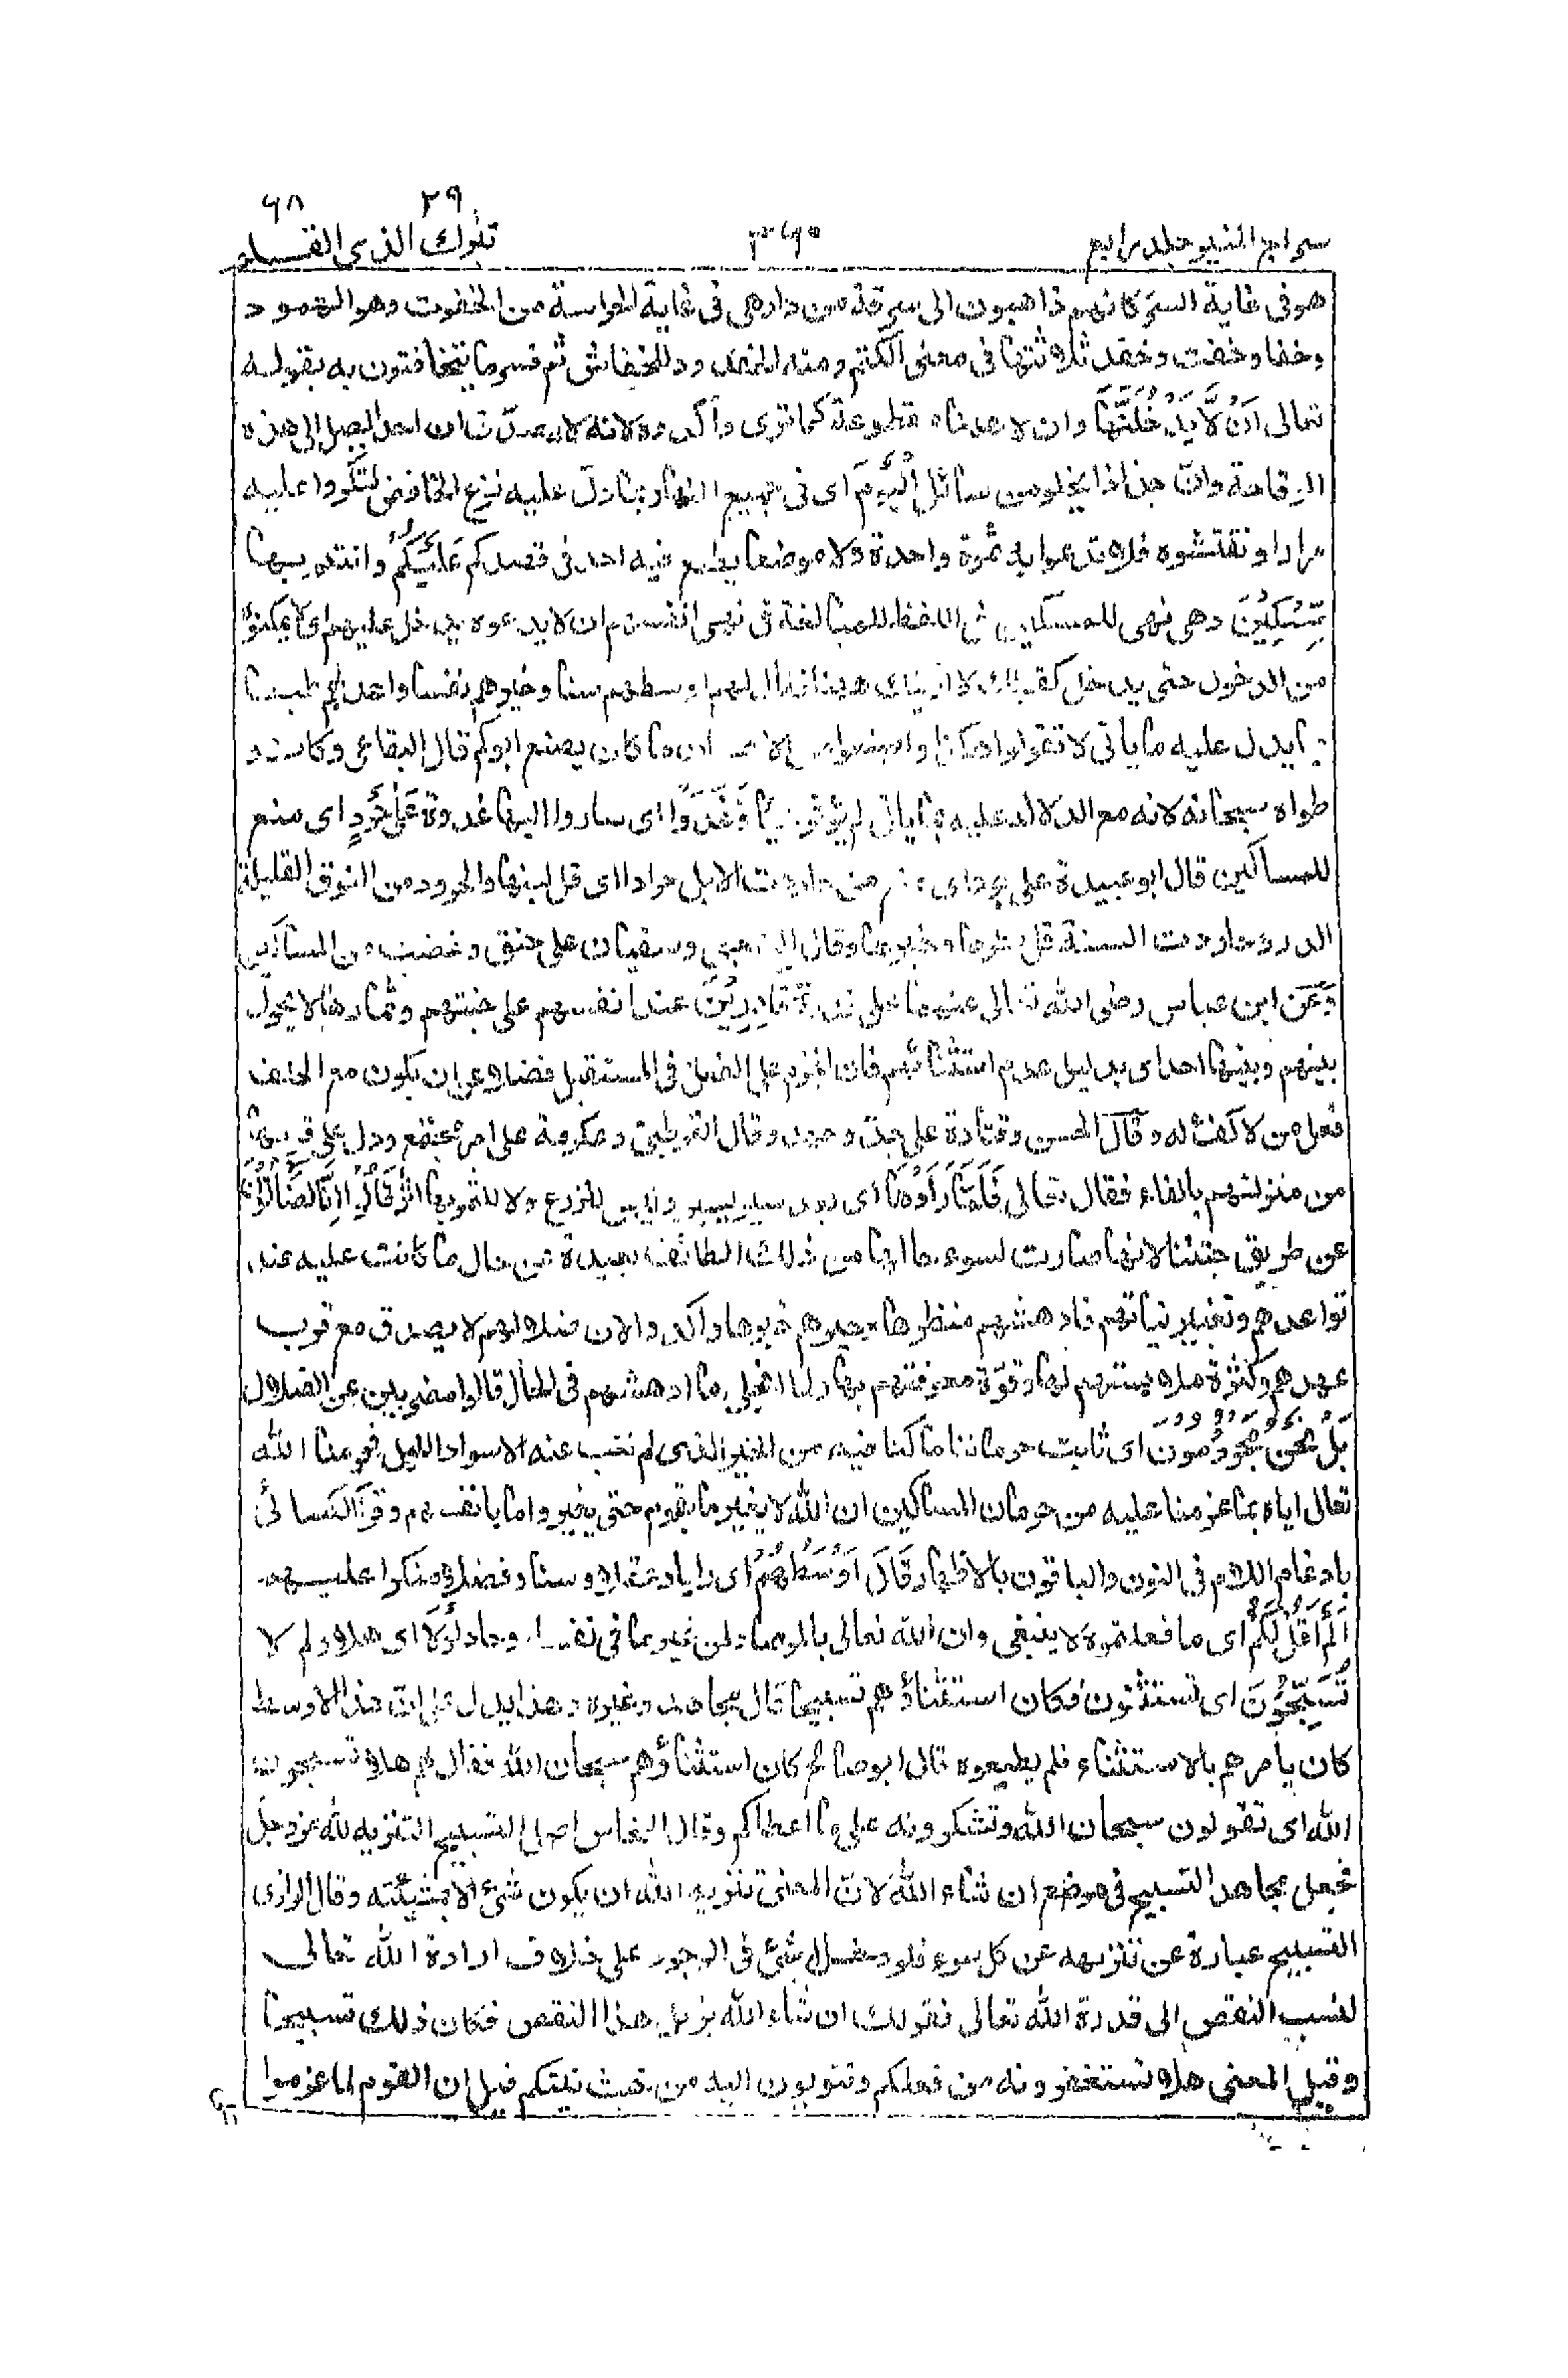 ٢٩ ٦٨
سراج المنير جلد رابع ٣٦٥ تبٰرك الذى القلم
هو فى غاية السر كانهم ذاهبون الى سرقة من دار هى فى غاية الحراسة من الخفوت وهو الخمود
وخفا وخفت وخفد ثلاثتها فى معنى الكتم ومنه الخفدود للخفاش ثم فسر ما يتخافتون به بقوله
تعالى اَنْ لَّا يَدْخُلَنَّهَا وان لا مقطوعة كما ترى واكدوه لانه لا يصدق ان احدا يصل الى هذه
الوقاحة وانّ جذاذا يخلو من سائل الْيَوْمَ اى فى جميع النهار بما دلّ عليه نزع الخافض لتكروا عليه
مرارا وتفتشوه فلا تدعوا به ثمرة واحدة ولا موضعا يطمع فيه احد فى قصدكم عَلَيْكُمْ وانتم بها
مِّسْكِيْنٌ وهى نهى للمسكين فى اللفظ للمبالغة فى نهى انفسهم ان لا يدعوه يدخل عليهم اى لا تمكنوه
من الدخول حتى يدخل كقولك لا ارينك ههنا فقال لهم اوسطهم سنا وخيرهم نفسا واحدهم طبعا
بما يدل عليه ما ياتى لا تقولوا هكذا واصنعوا من الاحسان ما كان يصنع ابوكم قال البقاعى وكانه
طواه سبحانه لانه مع الدلالة عليه بما ياتى لم يؤثر شيئا وَّغَدَوْا اى ساروا اليها غدوة عَلٰى حَرْدٍ اى منع
للمساكين قال ابو عبيدة على حرد اى منع من حاردت الابل حرادا اى قل لبنها والحرود من النوق القليلة
الدر وحاردت السنة قل مطرها وخيرها وقال الشعبى وسفيان على حنق وغضب من المساكين
وعن ابن عباس رضى الله تعالى عنهما على قدرة قٰدِرِيْنَ عند انفسهم على جنتهم وثمارها لا يحول
بينهم وبينها احد اى بدليل عدم استثنائهم فان الجزم على الفعل فى المستقبل فضلا عن ان يكون مع الحلف
فعل من لا كفؤ له وقال الحسن وقتادة على جدّ وجهد وقال القرطبى وعكرمة على امر مجتمع ودل على قربها
من منزلهم بالفاء فقال تعالى فَلَمَّا رَاَوْهَا اى بعد سير يسير وليس للزرع ولا للثمر بها اثر قَالُوْٓا اِنَّا لَضَآلُّوْنَ
عن طريق جنتنا لانها صارت لسوء حالها من ذلك الطائف بعيدة عن حال ما كانت عليه عند
تواعدهم وتغيير نياتهم فادهشهم منظرها وحيرهم خبرها واكدوا لان ضلالهم لا يصدق مع قرب
عهدهم وكثرة ملابستهم لها وقوة معرفتهم بها ولما انجلى ما ادهشهم فى الحال قالوا مضربين عن الضلال
بَلْ نَحْنُ مَحْرُوْمُوْنَ اى ثابت حرماننا ما كنا فيه من الخير الذى لم نغب عنه الا سواد الليل فحرمنا الله
تعالى اياه بما عزمنا عليه من حرمان المساكين ان الله لا يغير ما بقوم حتى يغيروا ما بانفسهم وقرأ الكسائى
بادغام اللام فى النون والباقون بالاظهار قَالَ اَوْسَطُهُمْ اى رايا وعقلا وسنا وفضلا منكرا عليهم
اَلَمْ اَقُلْ لَّكُمْ اى ما فعلتموه لا ينبغى وان الله تعالى بالمرصاد لمن غير ما فى نفسه وحاد لَوْلَا اى هلا ولم لا
تُسَبِّحُوْنَ اى تستثنون فكان استثناؤهم تسبيحا قال مجاهد وغيره وهذا يدل على ان هذا الاوسط
كان يأمرهم بالاستثناء فلم يطيعوه قال ابو صالح كان استثناؤهم سبحان الله فقال لهم هلا تسبحون
الله اى تقولون سبحان الله وتشكرونه على ما اعطاكم وقال النحاس اصل التسبيح التنزيه لله عز وجل
فجعل مجاهد التسبيح فى موضع ان شاء الله لانّ المعنى تنزيه الله ان يكون شئ الا بمشيئته وقال الرازى
التسبيح عبارة عن تنزيهه عن كل سوء فلو دخل شئ فى الوجود على خلاف ارادة الله تعالى
لنسب النقص الى قدرة الله تعالى فقولك ان شاء الله يزيل هذا النقص فكان ذلك تسبيحا
وقيل المعنى هلا تستغفرونه من فعلكم وتتوبون اليه من خبث نيتكم قيل ان القوم لما عزموا